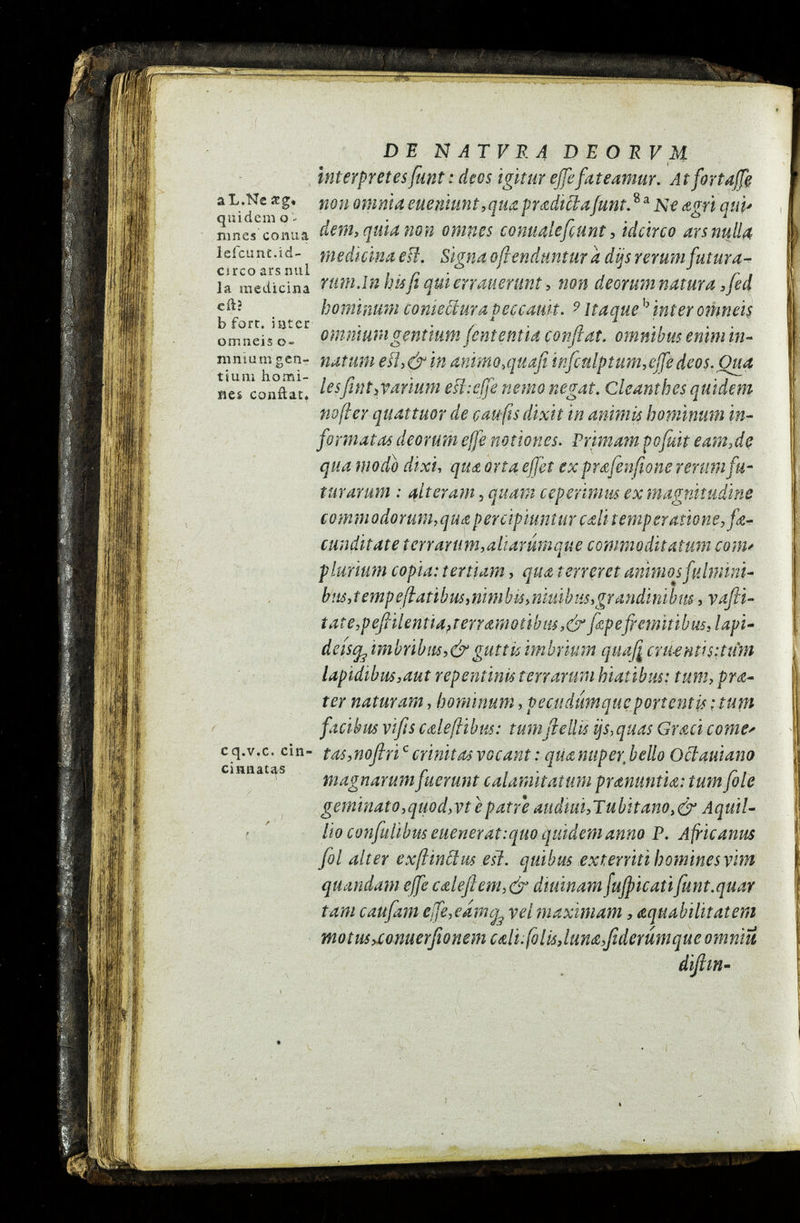 DE NATVRA DEORVM
interpretes sunt: deos igitur esse fateamur. At fortasse
non omnia eueniunt, quæ prædicta sunt. 8 a Ne ægri qui-
dem, quia non omnes conualescunt, idcirco ars nulla
medicina est. Signa ostenduntur à dijs rerum futura-
rum. In his si qui errauerunt, non deorum natura, sed
hominum coniectura peccauit. 9 Itaque b inter omneis
omnium gentium sententia constat. omnibus enim in-
natum est, & in animo, quasi insculptum, esse deos. Qua
les sint, varium est: esse nemo negat. Cleanthes quidem
noster quattuor de causis dixit in animis hominum in-
formatas deorum esse notiones. Primam posuit eam, de
qua modò dixi, quæ orta esset ex præsensione rerum fu-
turarum: alteram, quam ceperimus ex magnitudine
commodorum, quæ percipiuntur cæli temperatione, fæ-
cunditate terrarum, aliarúmque commoditatum com-
plurium copia: tertiam, quæ terreret animos fulmini-
bus, tempestatibus, nimbis, niuibus, grandinibus, vasti-
tate, pestilentia, terræmotibus, & sæpe fremitibus, lapi-
deisq; imbribus, & guttis imbrium quasi cruentis: tum
lapidibus, aut repentinis terrarum hiatibus: tum, præ-
ter naturam, hominum, pecudúmque portentis: tum
facibus visis cælestibus: tum stellis ijs, quas Græci come-
tas, nostri c crinitas vocant: quæ nuper bello Octauiano
magnarum fuerunt calamitatum prænuntiæ: tum sole
geminato, quod, vt è patre audiui, Tubitano, & Aquil-
lio consulibus euenerat: quo quidem anno P. Africanus
sol alter exstinctus est. quibus exterriti homines vim
quandam esse cælestem, & diuinam suspicati sunt. quar
tam causam esse, eámq; vel maximam, æquabilitatem
motus, conuersionem cæli: solis, lunæ, siderúmque omniũ
distin-
a L. Ne æg.
quidem o-
mnes conua
lescunt. id-
circo ars nul
la medicina
est?
b fort. inter
omneis o-
mnium gen-
tium homi-
nes constat.
c q.v.c. cin-
cinnatas